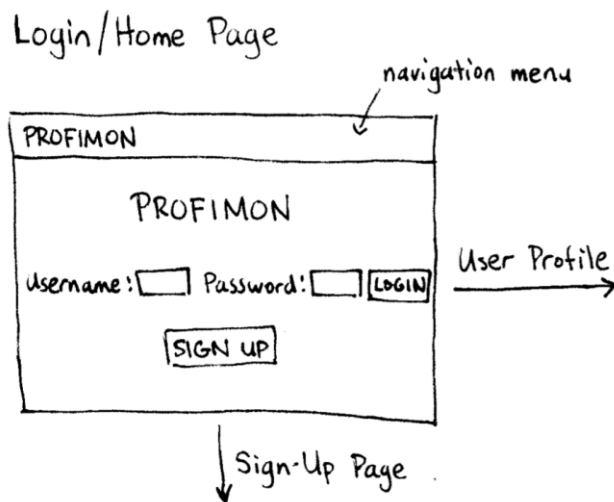 Login/Home Page
navigation menu
PROFIMON
PROFIMON
Username: Password: LOGIN
User Profile
SIGN UP
Sign-Up Page